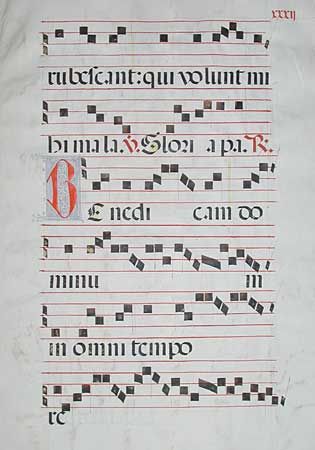 xxxij
rubescant: qui volunt mi
hi mala. V. Glori a pa. R.
BE nedi cam do
minu in
in omni tempo
re